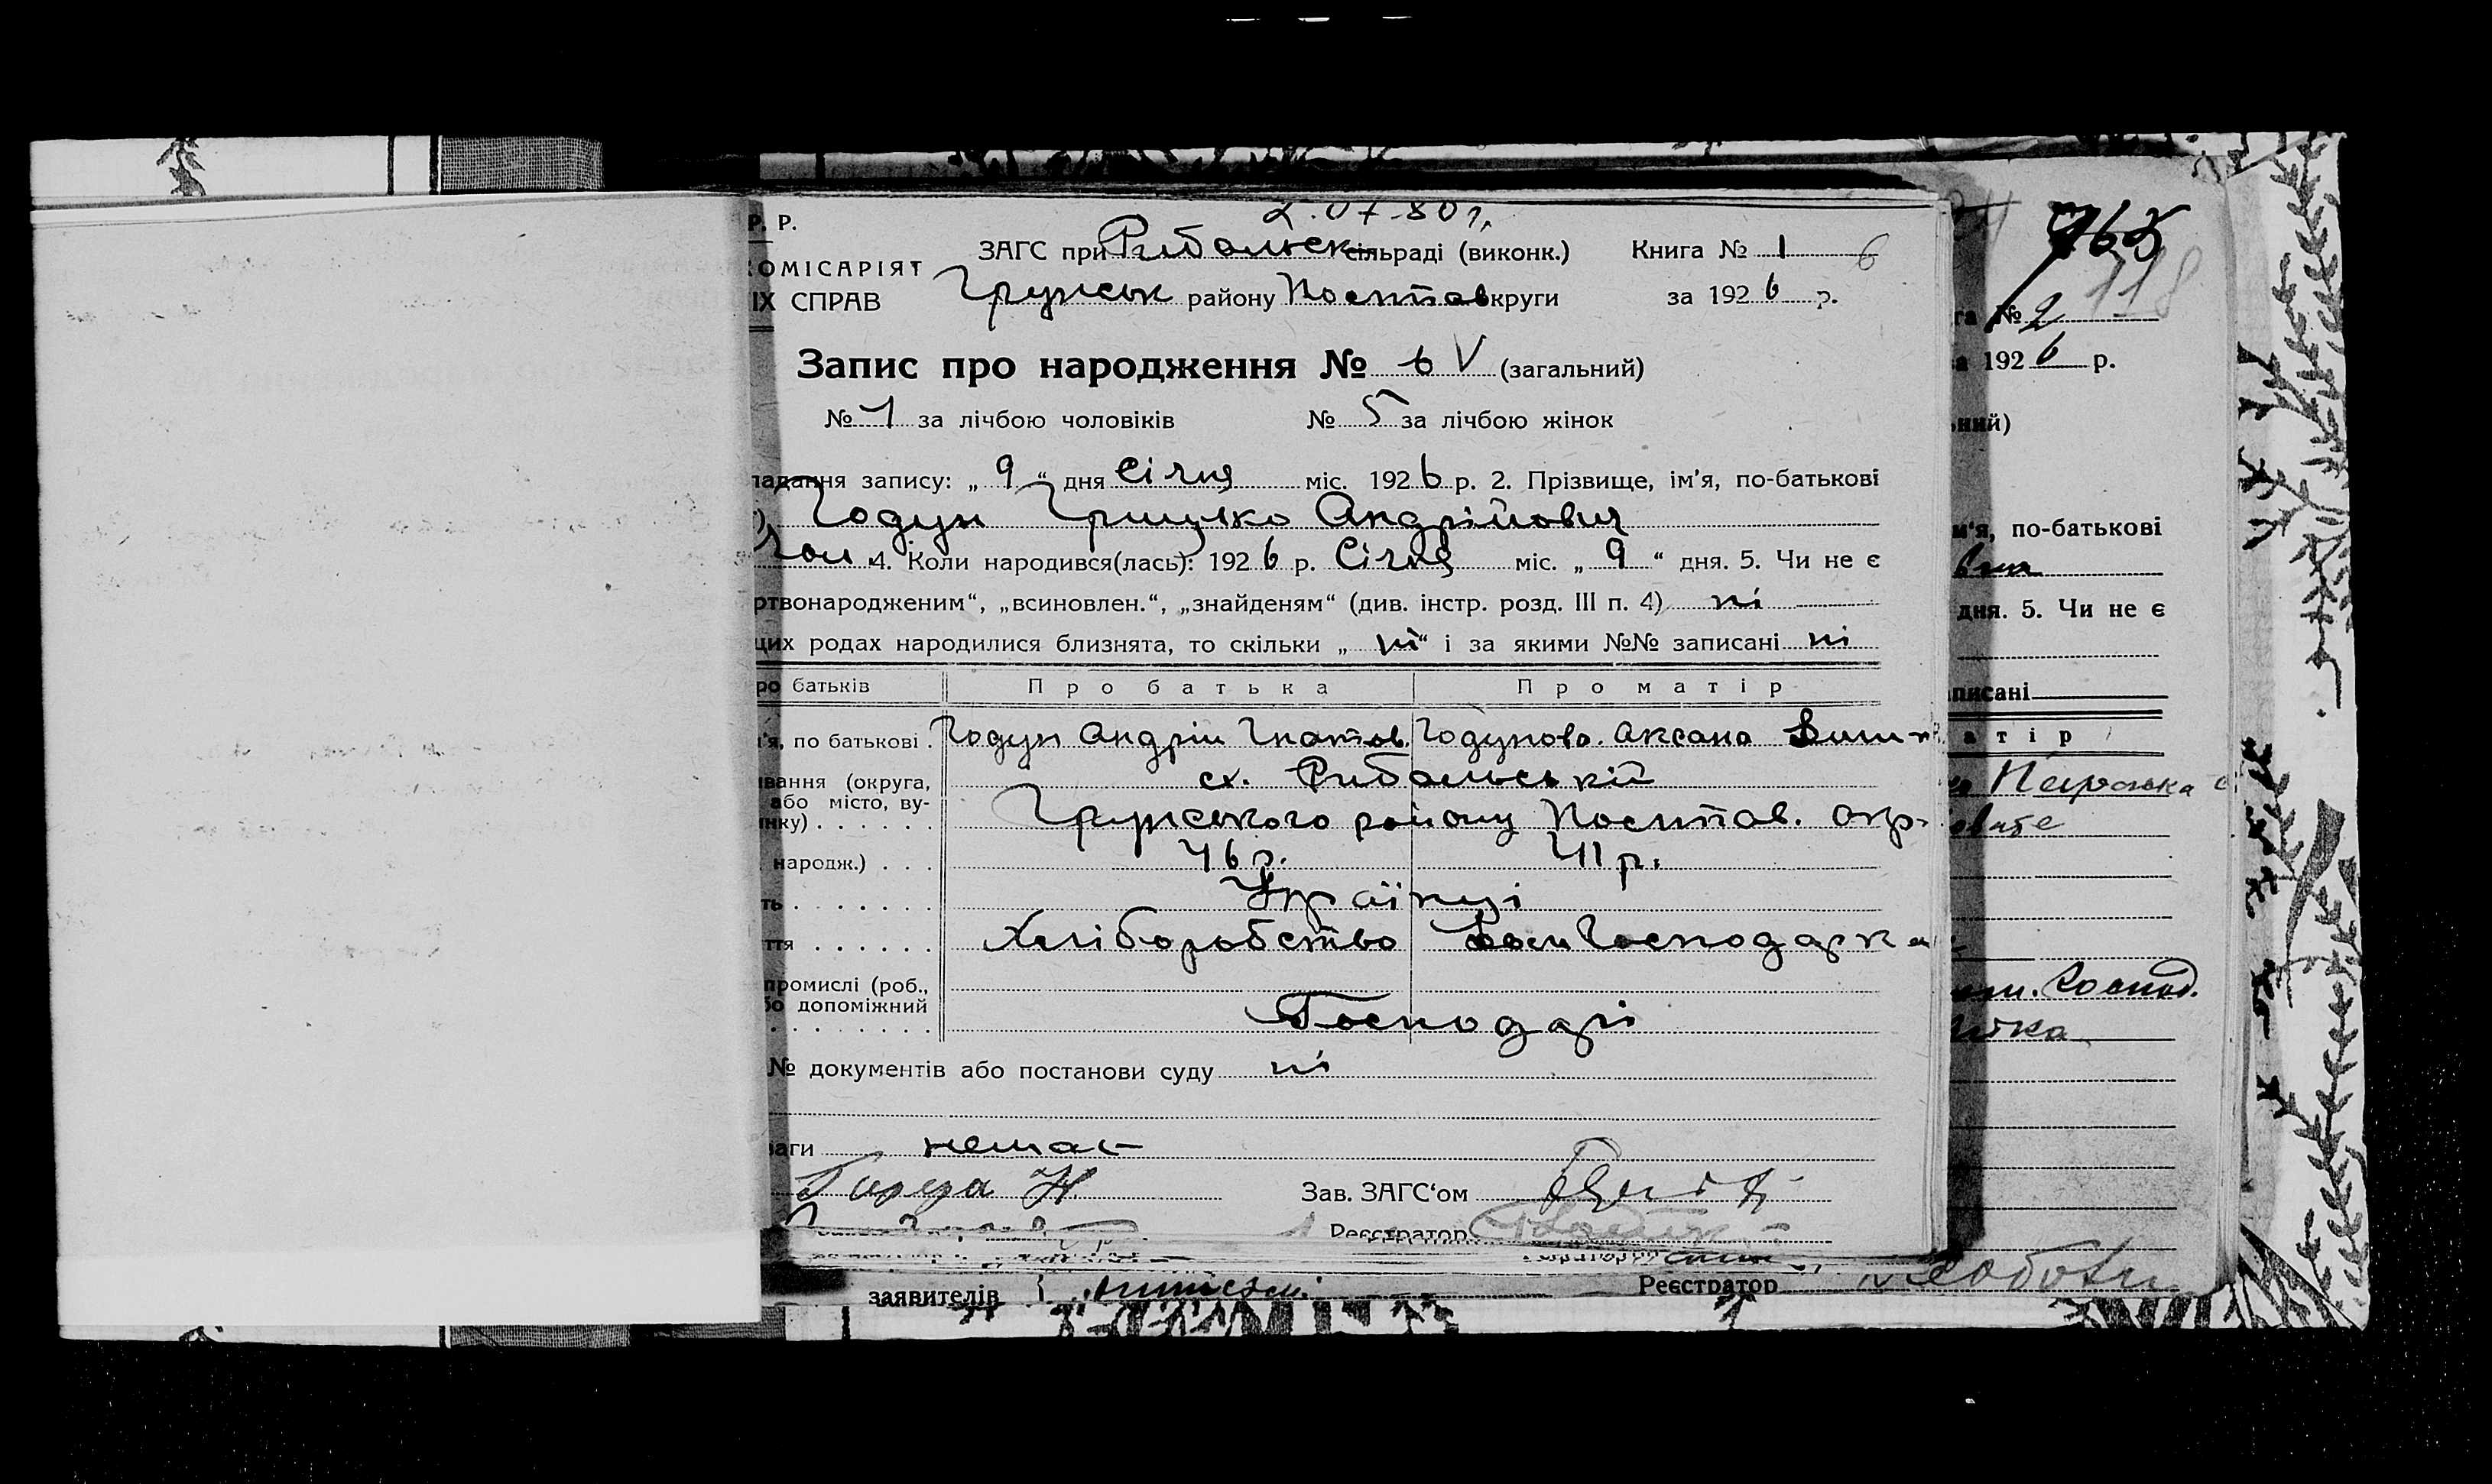 2.07.80 р.
Р. Р.
ЗАГС при Рибальськ сільраді (виконк.) Книга № 1 6
ОМІСАРІЯТ
ІХ СПРАВ
Грунськ району Полтав округи за 1926 р.
Запис про народження № 6 V (загальний)
№ 1 за лічбою чоловіків № 5 за лічбою жінок
падання запису: „ 9 “ дня Січня міс. 1926 р. 2. Прізвище, ім'я, по-батькові
Годун Грицько Андрійович
чол 4. Коли народився(лась): 1926 р. Січня міс. „ 9 “ дня. 5. Чи не є
ртвонародженим“, „всиновлен.“, „знайденям“ (див. інстр. розд. III п. 4) ні
цих родах народилися близнята, то скільки „ ні “ і за якими №№ записані ні
ро батьків Про батька Про матір
'я, по батькові . Годун Андрій Гнатов. Годунова. Аксана
вання (округа, або місто, ву-
нку) . . . . . . сх. Рибальській
Грунського району Полтав. окр.
народж.) . . . 46 р. 41 р.
ть . . . . . . . Українці
ття . . . . . . Хліборобство Господарка
промисли (роб.,
бо допоміжний
. . . . . . . . Господарі
№ документів або постанови суду ні
ваги немає
Зав. ЗАГС'ом
Реєстратор
заявителів Реєстратор
765
118
га № 2
а 1926 р.
ьний)
м'я, по-батькові
вна
дня. 5. Чи не є
писані
а т і р
Господ.